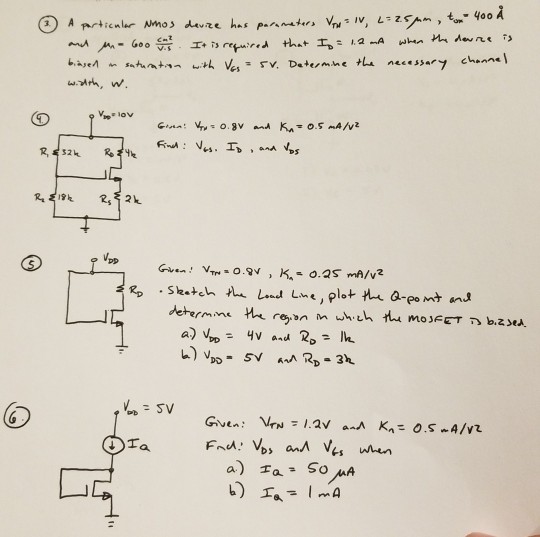 3. A particular NMOS device has parameters V_TN = 1V, L = 2.5 μm, t_ox = 400 Å
and μ_n = 600 cm²/V·s. It is required that I_D = 1.2 mA when the device is
biased in saturation with V_GS = 5V. Determine the necessary channel
width, W.
4 V_DD = 10V
Given: V_TN = 0.8V and K_n = 0.5 mA/V²
R₁ 32k R_D 4k
Find: V_GS, I_D, and V_DS
R₂ 18k R_S 2k
5 V_DD
Given: V_TN = 0.8V, K_n = 0.25 mA/V²
R_D
· Sketch the Load Line, plot the Q-point and
determine the region in which the MOSFET is biased.
a.) V_DD = 4V and R_D = 1k
b.) V_DD = 5V and R_D = 3k
6. V_DD = 5V
Given: V_TN = 1.2V and K_n = 0.5 mA/V²
I_Q
Find: V_DS and V_GS when
a.) I_Q = 50 μA
b) I_Q = 1 mA